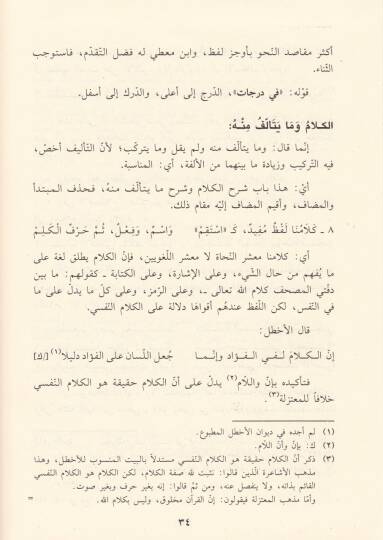 أكثر مقاصد النّحو بأوجز لفظ، وابن معطي له فضل التّقدّم، فاستوجب
الثّناء.
قوله: «في درجات»، الدّرج إلى أعلى، والدّرك إلى أسفل.
الكلامُ وَمَا يَتَألّفُ مِنْـهُ:
إنّما قال: وما يتألّف منه ولم يقل وما يتركّب؛ لأنّ التّأليف أخصّ،
فيه التّركيب وزيادة ما بينهما من الألفة، أي: المناسبة.
أيْ: هذا باب شرح الكلام وشرح ما يتألّف منهُ، فحذف المبتدأ
والمضاف، وأقيم المضاف إليْه مقام ذلك.
٨ ـ كَلَامُنَا لَفْظٌ مُفِيدٌ، كَـ «اسْتَقِمْ» وَاسْمٌ، وَفِعْلٌ، ثُمَّ حَرْفٌ الْكَلِمْ
أي: كلامنا معشر النّحاة لا معشر اللّغويين، فإنّ الكلام يطلق لغة على
ما يُفهم من حال الشّيء، وعلى الإشارة، وعلى الكتابة ـ كقولهم: ما بين
دفّتي المصحف كلام الله تعالى ـ، وعلى الرّمز، وعلى كلّ ما يدلّ على ما
في النّفس، لكن اللّفظ عندهُم أقواهَا دلالة على الكلام النّفسي.
قال الأخطل:
إنّ الـكـلامَ لـفـي الـفـؤاد وإنّـمـا جُعل اللّسان على الفؤاد دليلا(١) [٤/ك]
فتأكيده بإنّ واللّام(٢) يدلّ على أنّ الكلام حقيقة هو الكلام النّفسي
خلافاً للمعتزلة(٣).
(١) لم أجده في ديوان الأخطل المطبوع.
(٢) ك: بإنّ وأنّ اللّام.
(٣) ذكر أنّ الكلام حقيقة هو الكلام النّفسي مستدلاً بالبيت المنسوب للأخطل، وهذا
مذهب الأشاعرة الّذين قالوا: نثبت لله صفة الكلام، لكن الكلام هو الكلام النّفسي
القائم بذاته، ولا ينفصل عنه، ومن ثَمّ قالوا: إنه بغير حرف وبغير صوت.
وأمّا مذهب المعتزلة فيقولون: إنّ القرآن مخلوق، وليس بكلام الله. =
٣٤